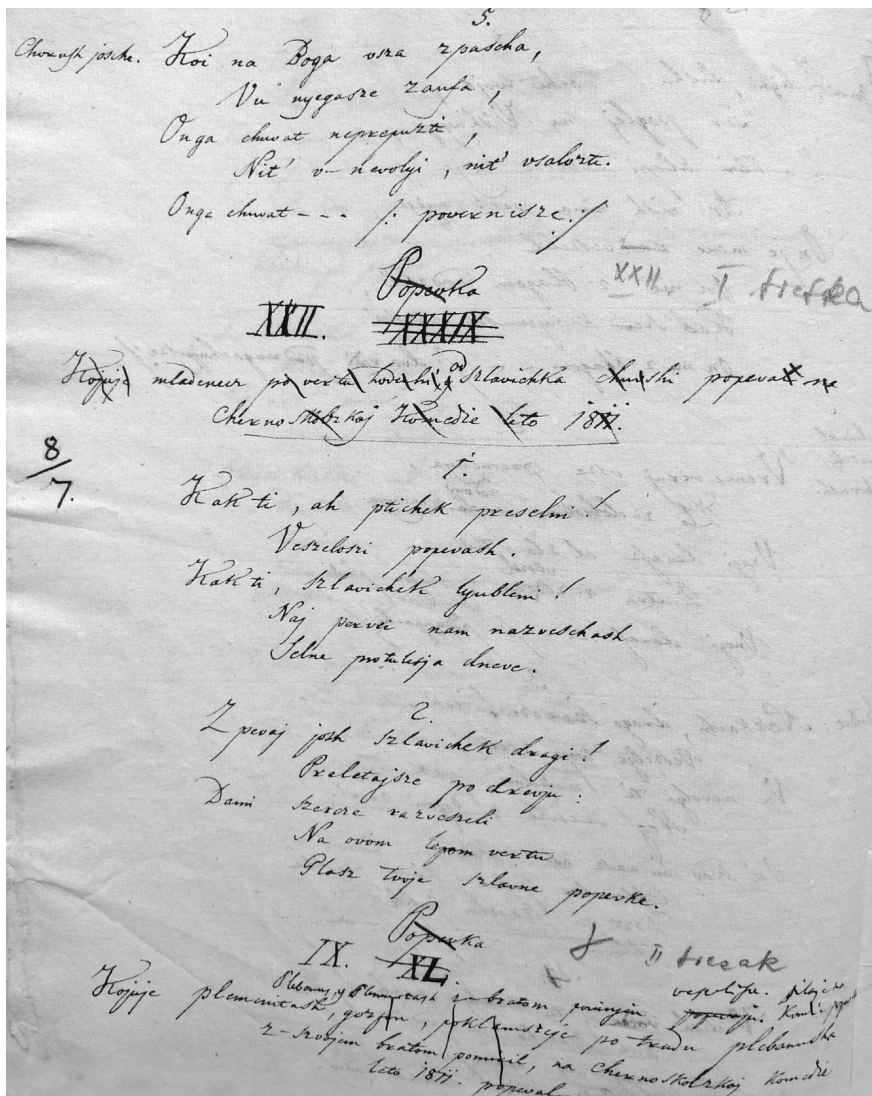 5.
Chorush josche. Koi na Boga vsza zpascha,
Vu nyegasze zaufa,
Onga chuvat neprepuzti,
Nit' v-nevolyi, nit' vsaloszti.
Onga chuvat - - - /: povernisze :/
Popevka
XXII. I. treska
XXII. XXXIX
Kojuje mladenecz po vertu hodechi, od szlavichka chuvshi popeval na
Chernoskolzkoj Komedie leto 1811.
8/7.
1.
Kak ti, ah ptichek preselni!
Veszeloszi popevash.
Kak ti, szlavichek lyubleni!
Naj pervei nam nazveschash
Selne protuletja dneve.
2.
Zpevaj josh szlavichek dragi!
Preletajsze po drevju:
Dami szercze razveszeli
Na ovom lepom vertu
Glasz tvoje szlavne popevke.
Popevka
IX. XL. II tresak
Plebanus, y Plemenitash z-bratom
Kojuje plemenitash, goszpon, poklamszeje po trudu plebanusha
z-szvojem bratom pomiril, na Chernoskolzkoj Komedie
leto 1811. popeval